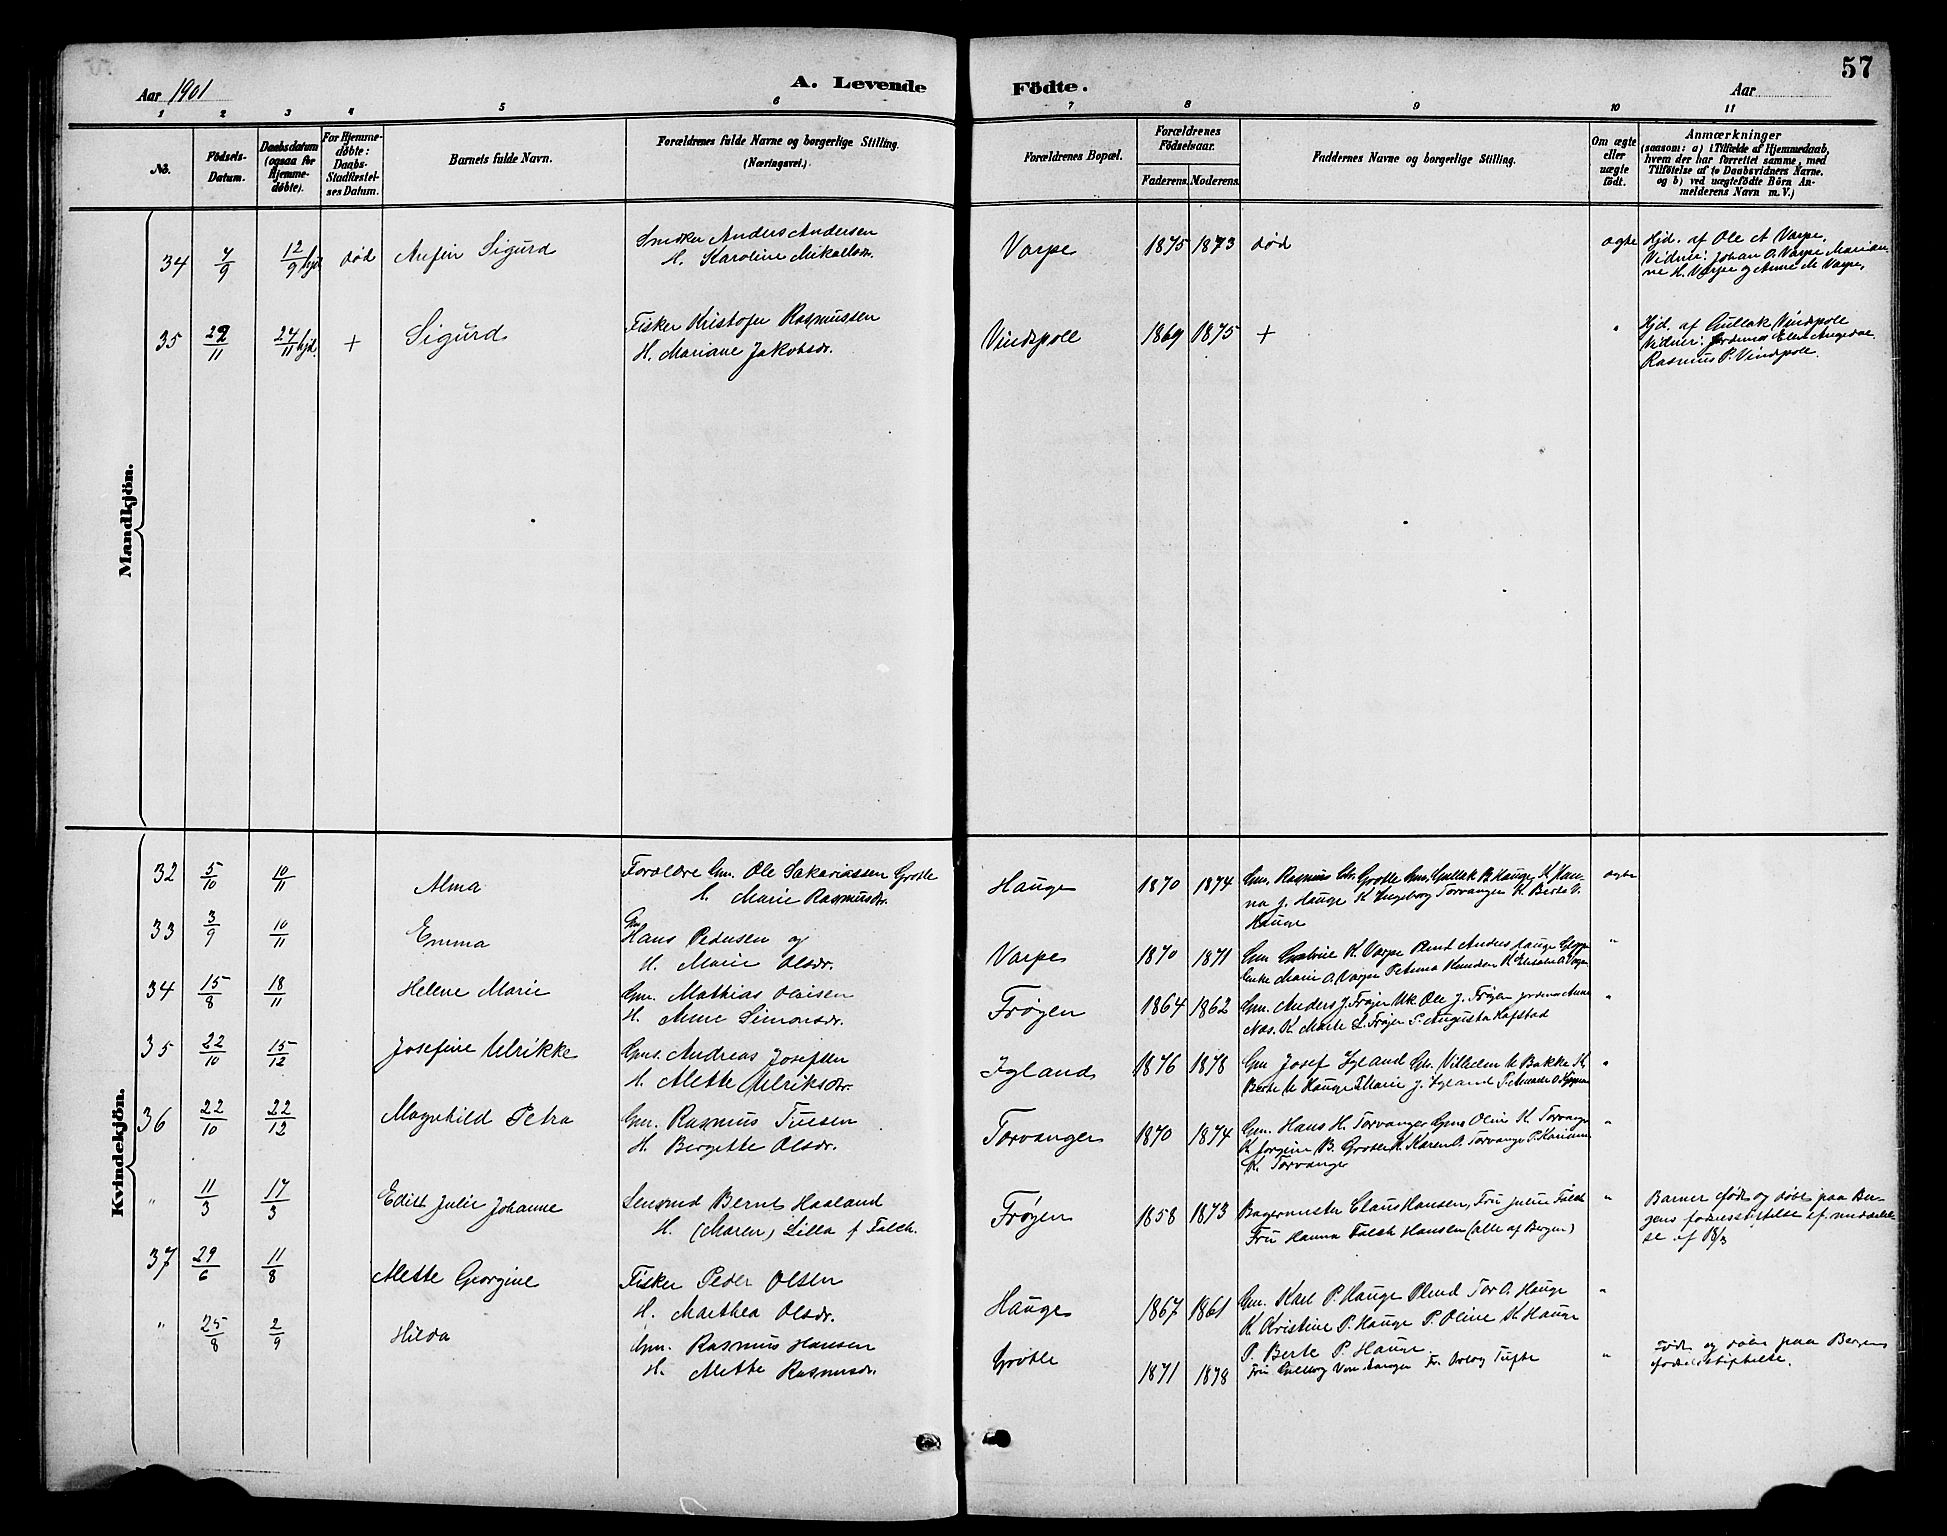 57
Aar 1901
A. Levende Födte.
Aar
1 2 3 4 5 6 7 8 9 10 11
No.
Födsels-
Datum.
Daabsdatum
(ogsaa for
Hjemme-
döbte).
For Hjemme-
döbte:
Daabs-
Stadfæstel-
ses Datum.
Barnets fulde Navn.
Forældrenes fulde Navne og borgerlige Stilling.
(Næringsvei.)
Forældrenes Bopæl.
Forældrenes
Födselsaar.
Faderens. Moderens.
Faddernes Navne og borgerlige Stilling.
Om ægte
eller
uægte
födt.
Anmærkninger
(saasom: a) i Tilfælde af Hjemmedaab,
hvem der har forrettet samme, med
Tilföielse af to Daabsvidners Navne.
og b) ved uægtefödte Börn An-
melderens Navn m. V.)
Mandkjön.
34 7/9 12/9 hjd død Anfin Sigurd
Snedker Anders Andersen
H. Karoline Mikalsdr.
Varpe 1875 1873 død ægte
Hjd. af Ole A Varpe.
Vidner: Johan O. Varpe Marian-
ne H. Varpe og Anne M Varpe,
35 22/11 24/11 hjd + Sigurd
Fisker Kristofer Rasmussen
H. Mariane Jakobsdr.
Vindspoll 1869 1875 + "
Hjd. af Gullak Vindspoll
Vidner: Jordemor Ellen
Rasmus P. Vindspoll.
Kvindekjön.
32 5/10 10/11 Alma
Forældre Gm. Ole Sakariassen Grotle
H. Marie Rasmusdr.
Hauge 1870 1874
Gm. Rasmus Chr. Grotle Gm. Gullak B. Hauge K Han-
na J. Hauge K Ingeborg Torvanger K Berte V.
Hauge
ægte
33 3/9 10/11 Emma
Gm
Hans Pedersen og
H. Marie Olsdr.
Varpe 1870 1871
Gm K. Varpe Anders Hauge
Enke Marie O. Varpe Petrina Knudsen K
"
34 15/8 18/11 Helene Marie
Gm. Mathias Olaisen
H. Anne Simonsdr.
Frøyen 1864 1862
Gm. Anders J. Frøyen Uk Ole J. Frøyen Anne
Næs. K. Marte L. Frøyen P. Augusta Hafstad
"
35 22/10 15/12 Josefine Ulrikke
Gms. Andreas Josefsen
H. Mette Ulriksdr.
Igland 1876 1878
Gm Josef Igland Gm. Villhelm U Bakke K
Berte U Hauge Marie J. Igland
"
36 22/10 22/12 Magnhild Petra
Gm. Rasmus Tuesen
H. Bergitte Olsdr.
Torvanger 1870 1874
Gm. Hans H. Torvanger Gms Olin K. Torvanger
K Jorgine B. Grotle K. Karen O. Torvanger P.
K. Torvanger
"
" 11/3 17/3 Edith Julie Johanne
Lensmd Bernt Haaland
H. (Maren) Lilla f Falch.
Frøyen 1858 1873
Bagermester Claus Hansen, Fru Julie Falch
Fru Hanna Falch Hansen (alle af Bergen)
"
Barnet født og døbt paa Ber-
gens fødselsstiftelse ef. meddelel-
se af 18/3
37 29/6 11/8 Mette Georgine
Fisker Peder Olsen
H. Marthea Olsdr.
Hauge 1867 1861
Gm. Karl P. Hauge Tor O. Hauge
K. Kristine P. Hauge P. Oline K Hauge
P. Berte P. Hauge
"
" 25/8 2/9 Hilda
Gm. Rasmus Hansen
H. Mette Rasmusdr.
Grotle 1871 1878
Fru Fr. Tufte
"
Født og døbt paa Bergens
fødselsstiftelse.